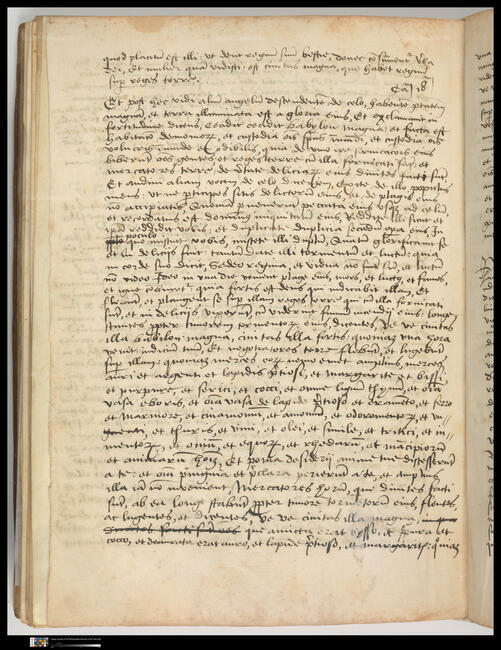 quod placitum est illi: ut dent regnum suu bestie, donec cosumentr v̄ba
dei, et mulier quā vidisti: est civitas magna, que habet regnum
sup reges terre.
Ca 18
Et post hec vidi aliu angelum descendente de celo, habente ptatem
magna, et terra illuminata est a gloria eius, Et exclamavit in
fortitudine dicens, Cecidit cecidit babylon magna: et facta est
habitatio demonior, et custodia ois spūs immūdi, et custodia ois
volucris immūde et odibilis, quia de vino ire fornicatiois eius
biberut oes gentes, et reges terre cū illa fornicati sut: et
mercatores terre de v̄tute deliciar eius divites facti sut
Et audivi aliam voce de celo dicetem, exite de illo populus
meus, ut ne pticipes sitis delictorum eius, et de plagis eius
nō accipiatis, Quonia pvenerut peccata eius usq ad celū
et recordatus est dominus iniquitatu eius, Reddite illi sicut et
ipa reddidit vobis, et duplicate duplicia secūdu opa eius, In
poculo quo miscuit vobis, miscete illi duplu, Quātu glorificavit se
et in deliciis fuit: tantu date illi tormentu et luctu: quia
in corde suo dicit, Sedeo regina, et vidua nō sum, et luctu
nō videbo Ideo in una die venient plage eius, mors, et luctus, et fames,
et igne coburet: quia fortis est deus qui iudicabit illam, Et
flebunt, et plangent se sup illam reges terre qui cū illa fornicati
sut, et in deliciis vixerunt, cū viderint fumu incendii eius: longe
stantes ppter timorem tormentor eius, dicentes, Ve ve civitas
illa babilon magna, civitas illa fortis: quoniaz una hora
venit iudiciū tuū, Et negotiatores terre flebūt, et lugebūt
sup illam: quoniaz merces eor nemo emet amplius, merces
auri et argenti et lapidis p̄tiosi, et margarite et bissi,
et purpure, et serici, et cocci, et omne lignum thyinū, et oīa
vasa eboris, et oīa vasa de lapide p̄tioso et eramēto, et ferro
et marmore, et cinamomū, et amomū, et odoramentor, et un-
guenti, et thuris, et vini, et olei, et simile, et tritici, et iu-
mentor, et oviū, et equor, et rhedarū, et macipiorū
et animarū hoīm, Et poma desiderii anime tue discesserūt
a te: et oīa pinguia et p̄clara perierūt a te, et amplius
illa iā nō invenient Mercatores horū, qui divites facti
sūt, ab ea longe stabunt ppter timore tormētorū eius, flentes,
ac lugentes, et dicentes, Ve ve civitas illa magna,
que amicta erat bysso, et p̄pura et
cocco, et deaurata erat auro, et lapide p̄tioso, et margaritis: qm̄